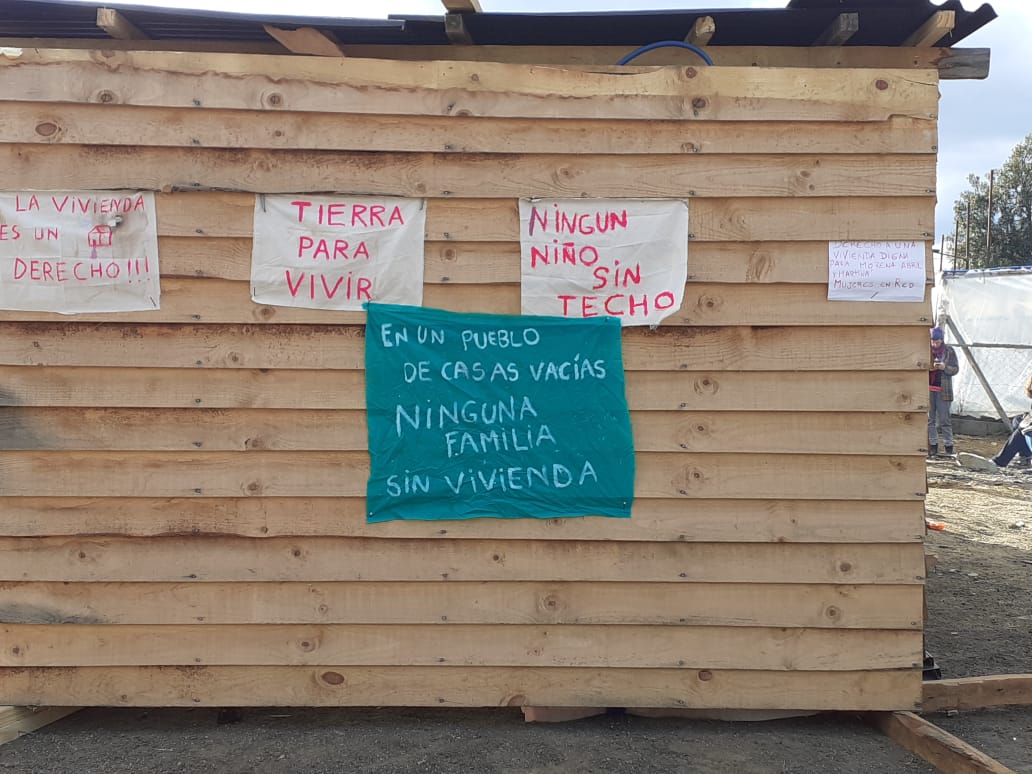 LA VIVIENDA
ES UN
DERECHO!!!
TIERRA
PARA
VIVIR
NINGUN
NIÑO
SIN
TECHO
DERECHO A UNA
VIVIENDA DIGNA
PARA MORENA ABRIL
Y MARTINA
MUJERES EN RED
EN UN PUEBLO
DE CASAS VACÍAS
NINGUNA
FAMILIA
SIN VIVIENDA